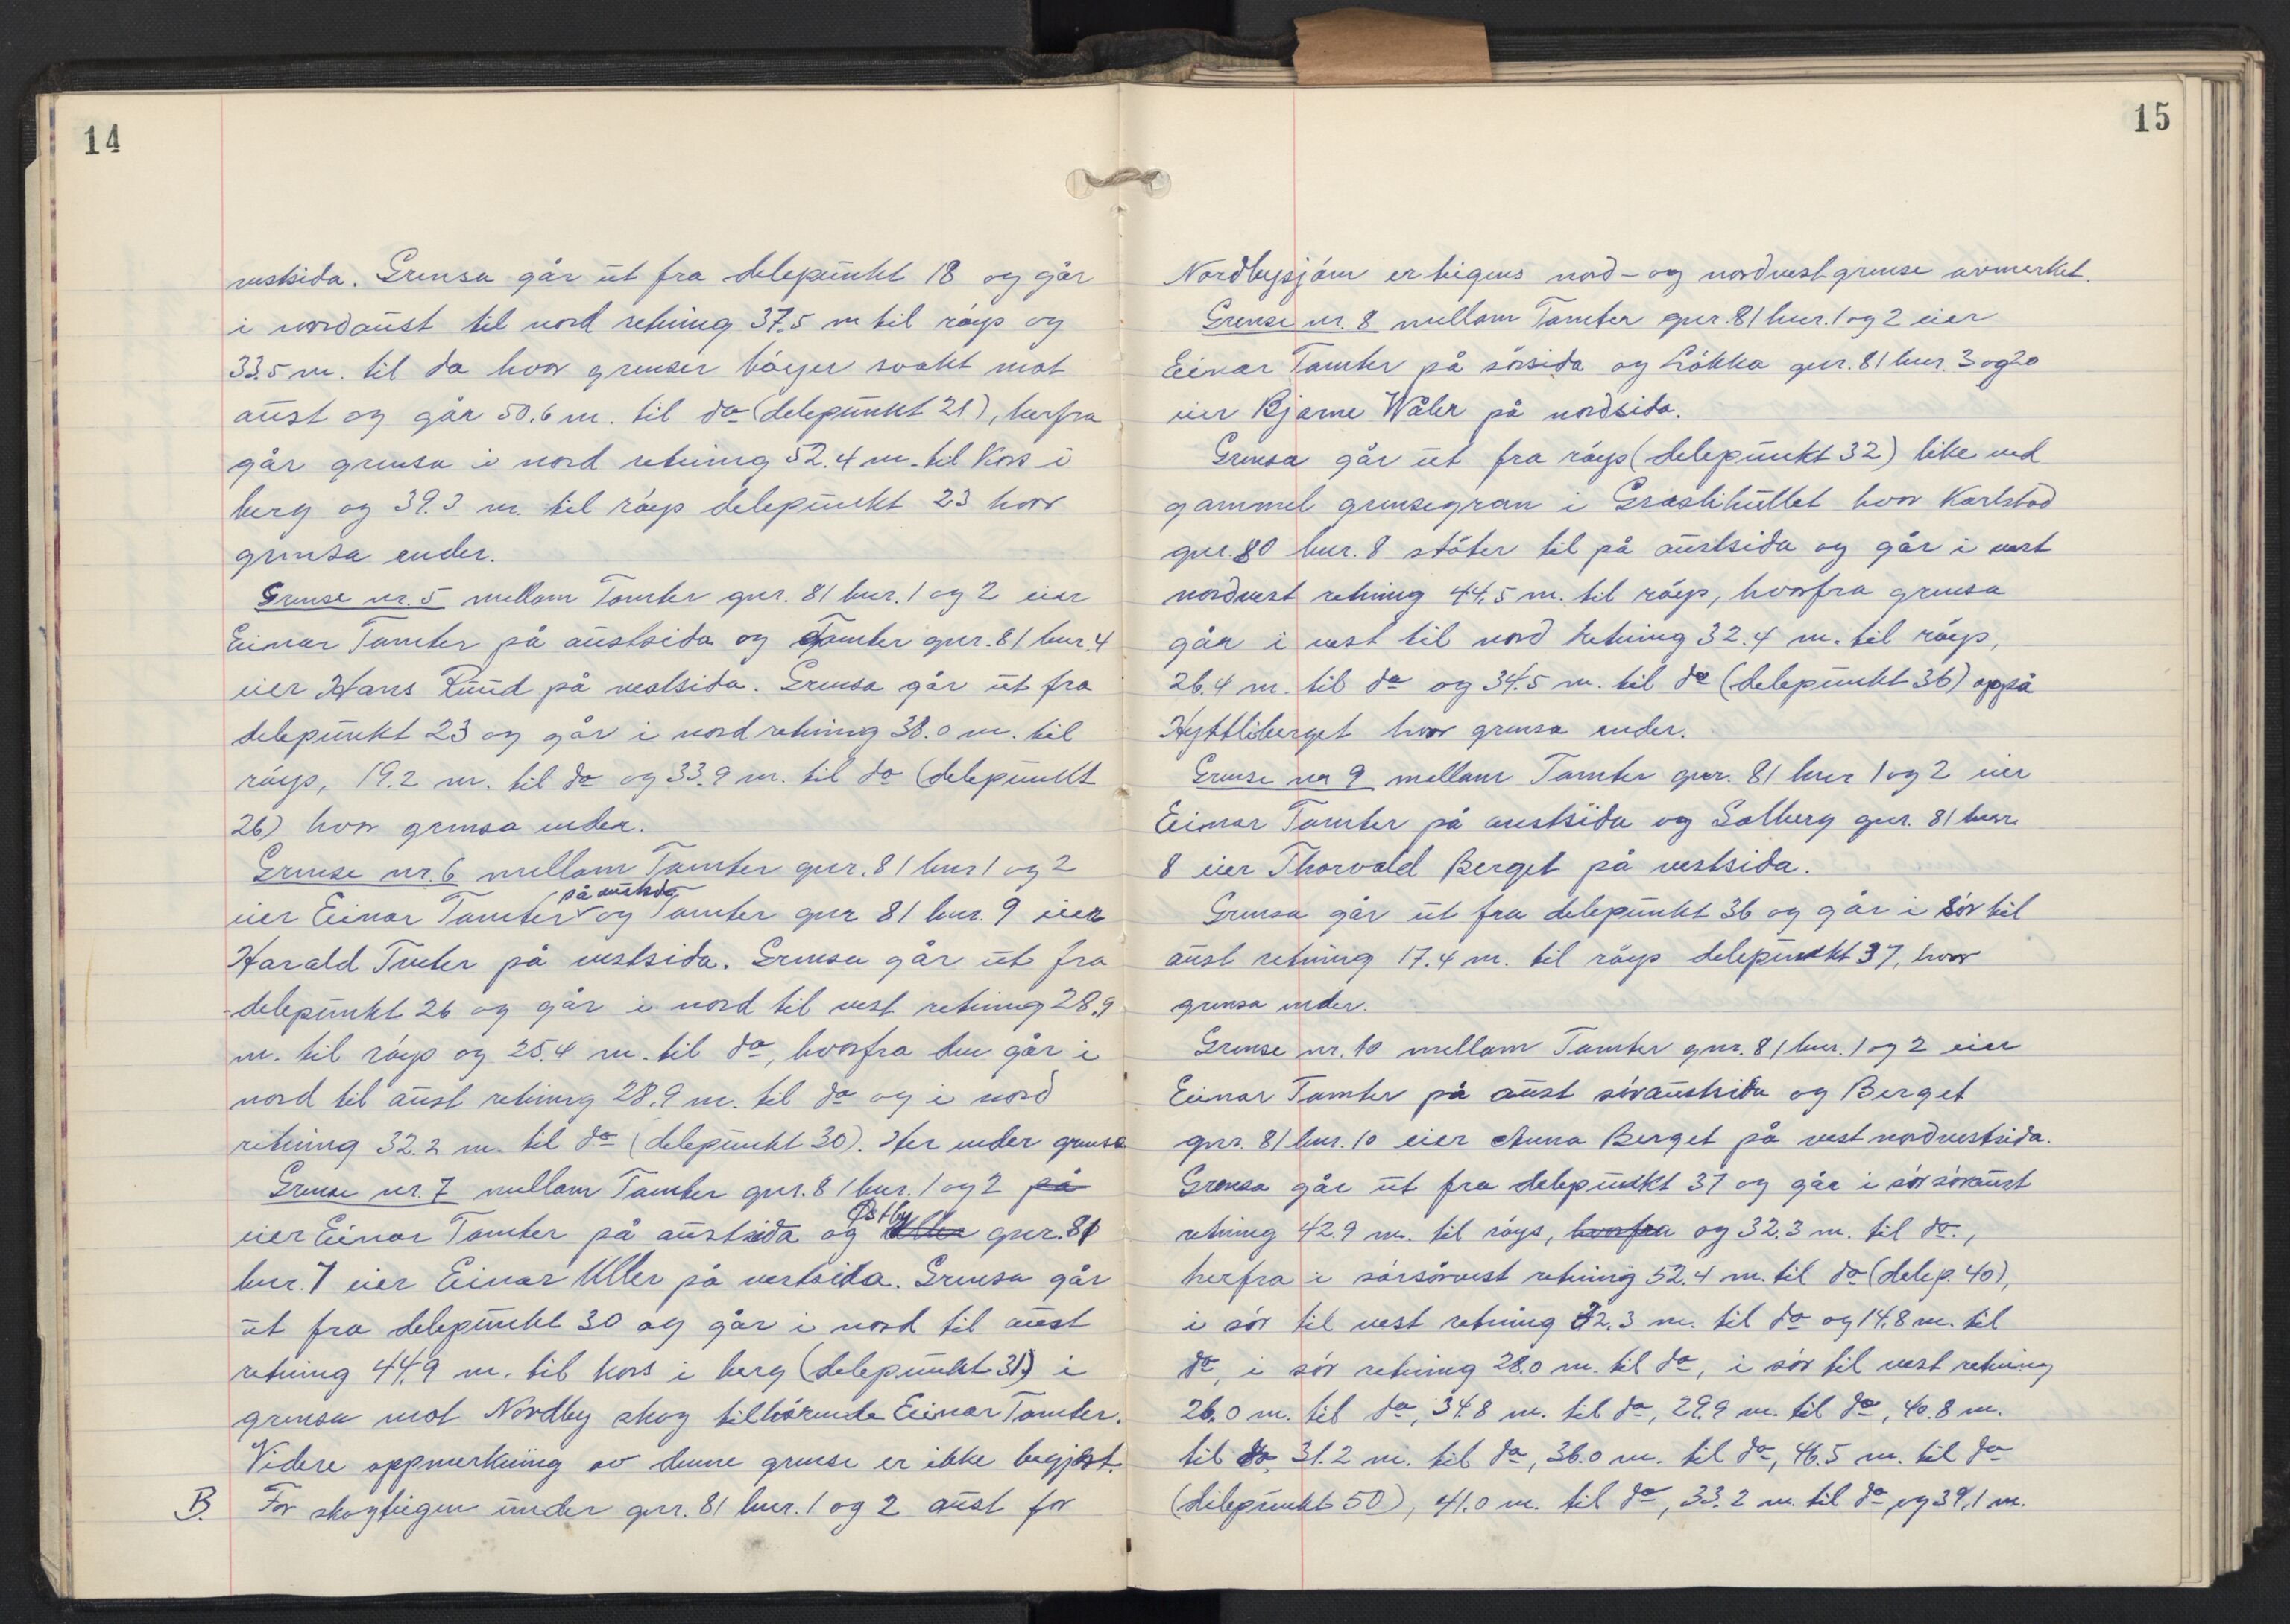 14
vestsida. Grensa går ut fra delepunkt 18 og går
i nordaust til nord retning 37.5 m til röys og
33.5 m. til do hvor grenser böyer svakt mot
aust og går 50.6 m. til do (delepunkt 21), herfra
går grensa i nord retning 52.4 m. til Kors i
berg og 39.3 m. til röys delepunkt 23 hvor
grensa ender.
Grense nr. 5 mellom Tomter gnr. 81 bnr. 1 og 2 eier
Einar Tomter på austsida og Tomter gnr. 81 bnr. 4
eier Hans Ruud på vestsida. Grensa går ut fra
delepunkt 23 og går i nord retning 38.0 m. til
röys, 19.2 m. til do og 33.9 m. til do (delepunkt
26) hvor grensa ender.
Grense nr. 6 mellom Tomter gnr. 81 bnr 1 og 2
eier Einar Tomter på austsida og Tomter gnr 81 bnr. 9 eier
Harald Tveter på vestsida. Grensa går ut fra
delepunkt 26 og går i nord til vest retning 28.9
m. til röys og 25.4 m. til do, hvorfra den går i
nord til aust retning 28.9 m. til do og i nord
retning 32.2 m. til do (delepunkt 30). Her ender grensa
Grense nr. 7 mellom Tomter gnr. 81 bnr. 1 og 2 på
eier Einar Tomter på austsida og Østby gnr. 81
bnr. 7 eier Einar Uller på vestsida. Grensa går
ut fra delepunkt 30 og går i nord til aust
retning 44.9 m. til kors i berg (delepunkt 31) i
grensa mot Nordby skog tilhörende Einar Tomter.
Videre oppmerking av denne grense er ikke begjært.
B. For skogteigen under gnr. 81 bnr. 1 og 2 aust for
15
Nordbysjöen er teigens nord- og nordvestgrense avmerket.
Grense nr. 8 mellom Tomter gnr. 81 bnr. 1 og 2 eier
Einar Tomter på sörsida og Lökka gnr. 81 bnr. 3 og 20
eier Bjarne Wåler på nordsida.
Grensa går ut fra röys (delepunkt 32) like ved
gammel grensegran i Graslihullet hvor Karlstad
gnr. 80 bnr. 8 stöter til på austsida og går i vest
nordvest retning 44.5 m. til röys, hvorfra grensa
går i vest til nord retning 32.4 m. til röys,
26.4 m. til do og 34.5 m. til do (delepunkt 36) oppå
Hyttliberget hvor grensa ender.
Grense nr 9 mellom Tomter gnr. 81 bnr 1 og 2 eier
Einar Tomter på austsida og Solberg gnr. 81 bnr.
8 eier Thorvald Berget på vestsida.
Grensa går ut fra delepunkt 36 og går i sör til
aust retning 17.4 m. til röys delepunkt 37, hvor
grensa ender.
Grense nr. 10 mellom Tomter gnr. 81 bnr. 1 og 2 eier
Einar Tomter på aust söraustsida og Berget
gnr. 81 bnr. 10 eier Anna Berget på vest nordvestsida.
Grensa går ut fra delepunkt 37 og går i sör söraust
retning 42.9 m. til röys, hvorfra og 32.3 m. til do.,
herfra i sörsörvest retning 52.4 m. til do (delep. 40),
i sör til vest retning 32.3 m. til do og 14.8 m. til
do, i sör retning 28.0 m. til do, i sör til vest retning
26.0 m. til do, 34.8 m. til do, 29.9 m. til do, 40.8 m.
til do, 31.2 m. til do, 36.0 m. til do, 46.5 m. til do
(delepunkt 50), 41.0 m. til do, 33.2 m. til do, og 39.1 m.